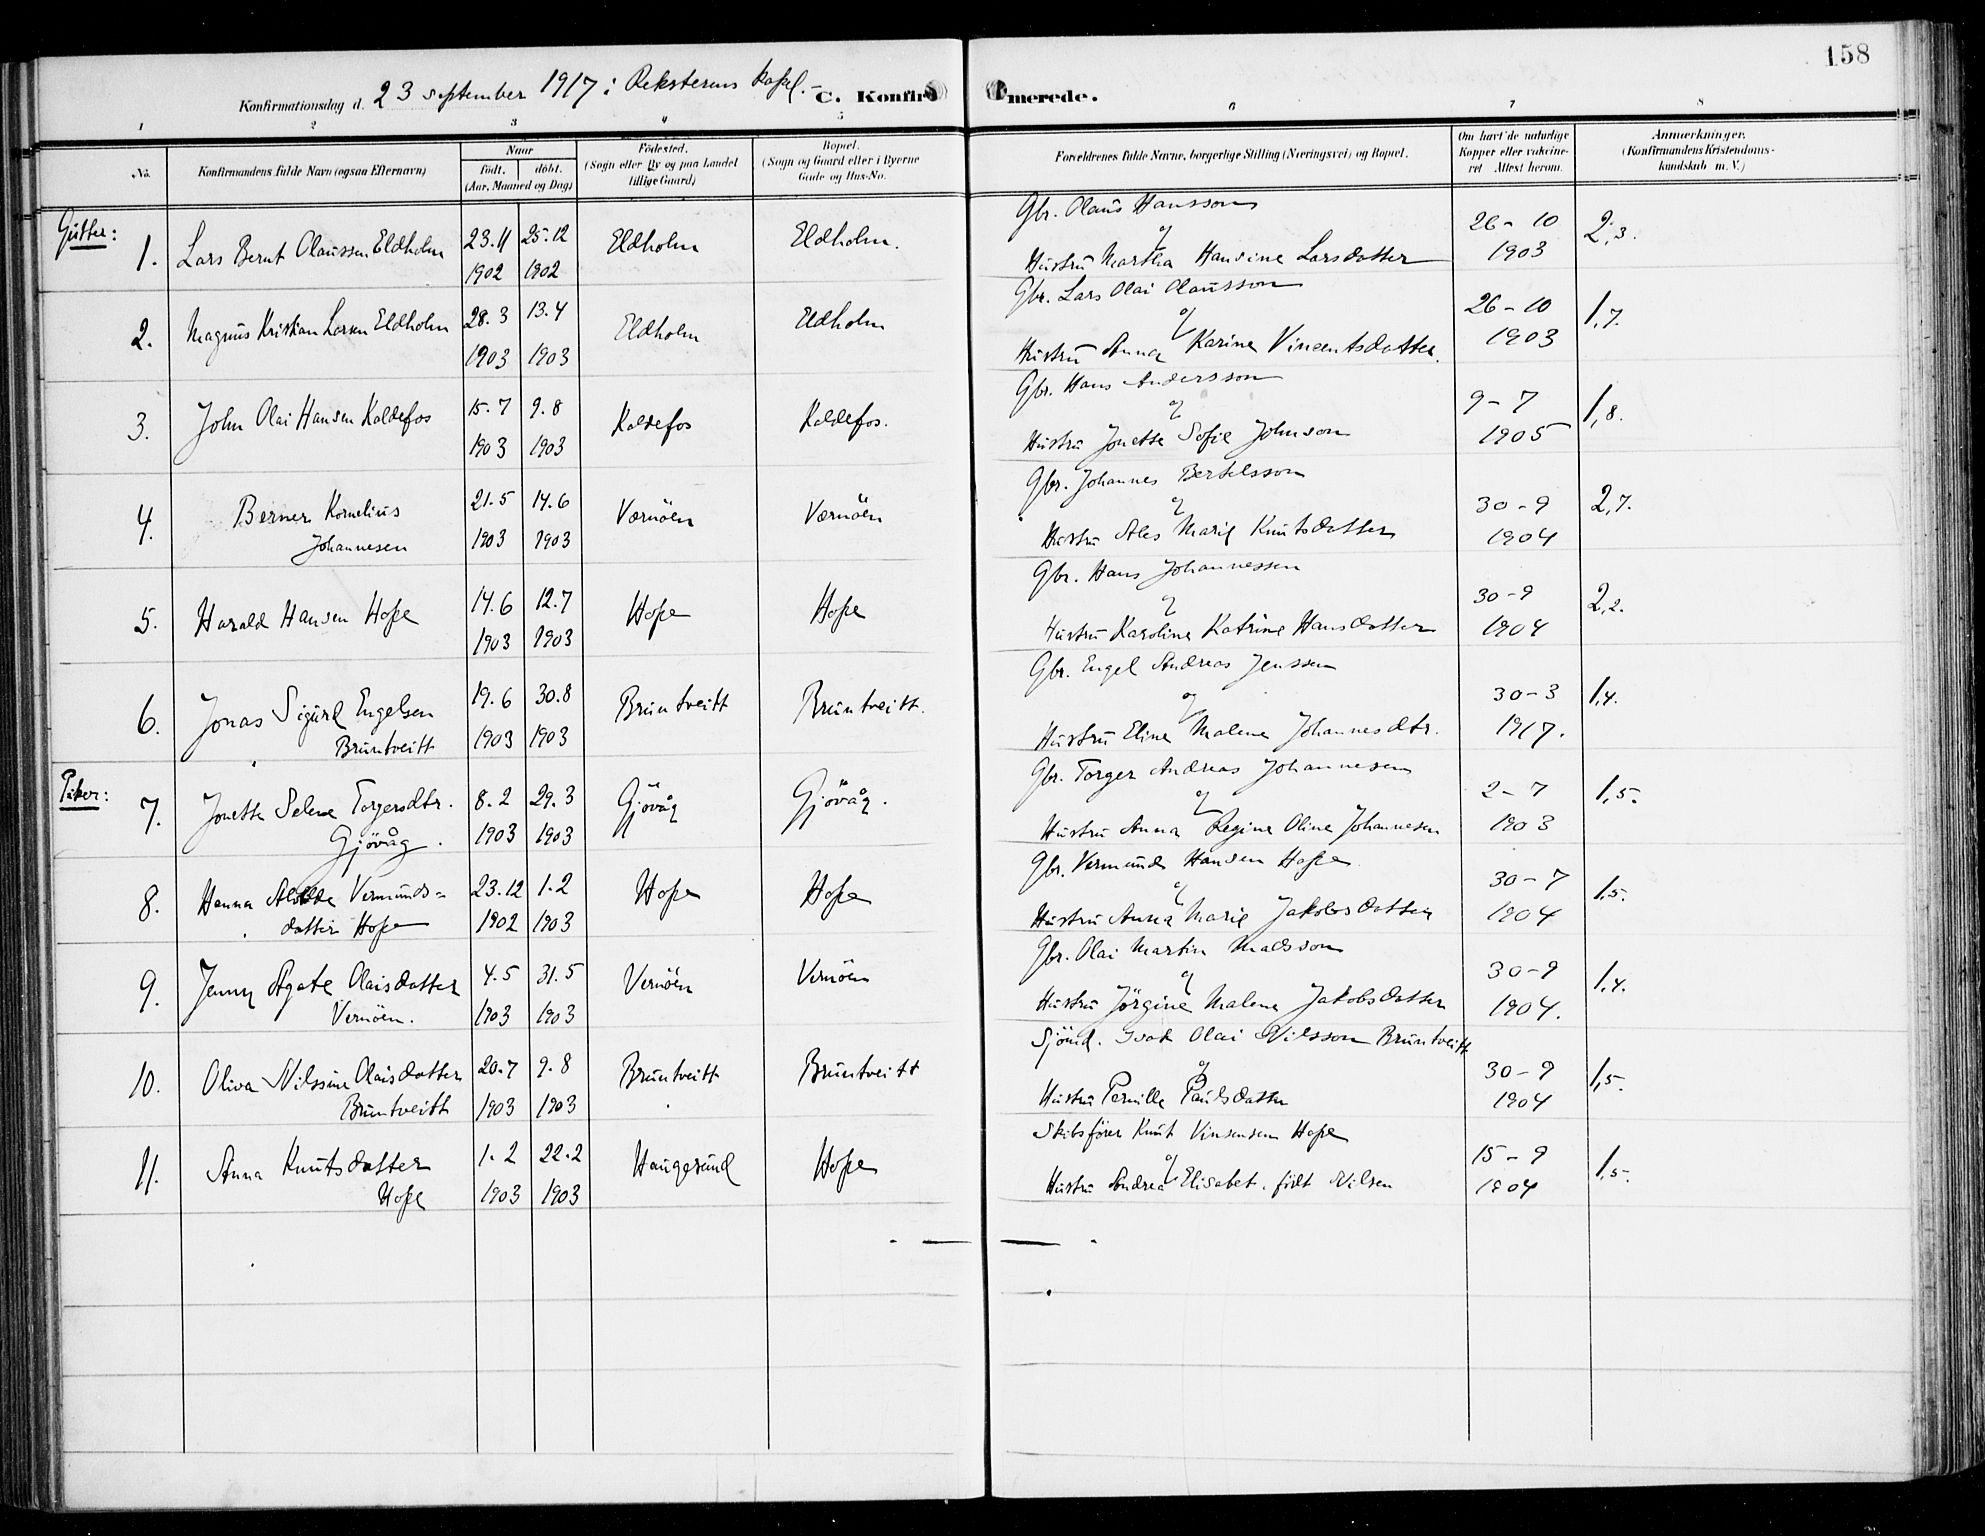 158
Konfirmationsdag d. 23 september 1917 i Reksterens kapel. C. Konfirmerede.
1 2 3 4 5 6 7 8
No. Konfirmandens fulde Navn (ogsaa Efternavn) Naar født. døbt. (Aar, Maaned og Dag) Fødested. (Sogn eller By og paa Landet tillige Gaard) Bopæl. (Sogn og Gaard eller i Byerne Gade og Hus-No. Forældrenes fulde Navne, borgerlige Stilling (Næringsvei) og Bopæl. Om havt de naturlige Kopper eller vakcineret Attest herom. Anmærkninger. (Konfirmandens Kristendomskundskab m. V.)
Gutter:
1. Lars Bernt Olaussen Eldholm 23.11 1902 25.12 1902 Eldholm Eldholm. Gbr. Olaus Hansson
og Hustru Martha Hansine Larsdatter 26-10 1903 2,3.
2. Magnus Kristian Larsen Eldholm 28.3 1903 13.4 1903 Eldholm Eldholm Gbr. Lars Olai Olausson
og Hustru Anna Karine Vincentsdatter. 26-10 1903 1,7.
3. John Olai Hansen Koldefos 15.7 1903 9.8 1903 Koldefos Koldefos. Gbr. Hans Andersson
og Hustru Jonette Sofie Johnson 9-7 1905 1,8.
4. Berner Kornelius
Johannesen 21.5 1903 14.6 1903 Vernöen Vernöen Gbr. Johannes Bertelsson
og Hustru Ales Marie Knutsdatter 30-9 1904 2,7.
5. Harald Hansen Hope 14.6 1903 12.7 1903 Hope Hope Gbr. Hans Johannessen
og Hustru Karoline Katrine Hansdatter 30-9 1904 2,2.
6. Jonas Sigurd Engelsen
Bruntveitt 19.6 1903 30.8 1903 Bruntveitt Bruntveitt. Gbr. Engel Andreas Jenssen
og Hustru Eline Malene Johannesdtr. 30-3 1917. 1,4.
Piker:
7. Jonette Selene Torgersdtr.
Gjövåg. 8.2 1903 29.3 1903 Gjövåg Gjövåg. Gbr. Torger Andreas Johannesen
og Hustru Anna Regine Oline Johannesen 2-7 1903 1,5.
8. Hanna Vermunds-
datter Hope 23.12 1902 1.2 1903 Hope Hope Gbr. Vermund Hansen Hope
og Hustru Anna Marie Jakobsdatter 30-7 1904 1,5.
9. Jenny Agate Olaisdatter
Vernöen. 4.5 1903 31.5 1903 Vernöen Vernöen Gbr. Olai Martin Madsson
og Hustru Jörgine Malene Jakobsdatter 30-9 1904. 1,4.
10. Oliva Nilssine Olaisdatter
Bruntveitt 20.7 1903 9.8 1903 Bruntveitt Bruntveitt Sjömd. Isak Olai Nilsson Bruntveitt
og Hustru Pernille Paulsdatter 30-9 1904 1,5.
11. Anna Knutsdatter
Hope 1.2 1903 22.2 1903 Haugesund Hope Skibsförer Knut Vinsensen Hope
og Hustru Andrea Elisabet, födt Nilsen 15-9 1904 1,5.